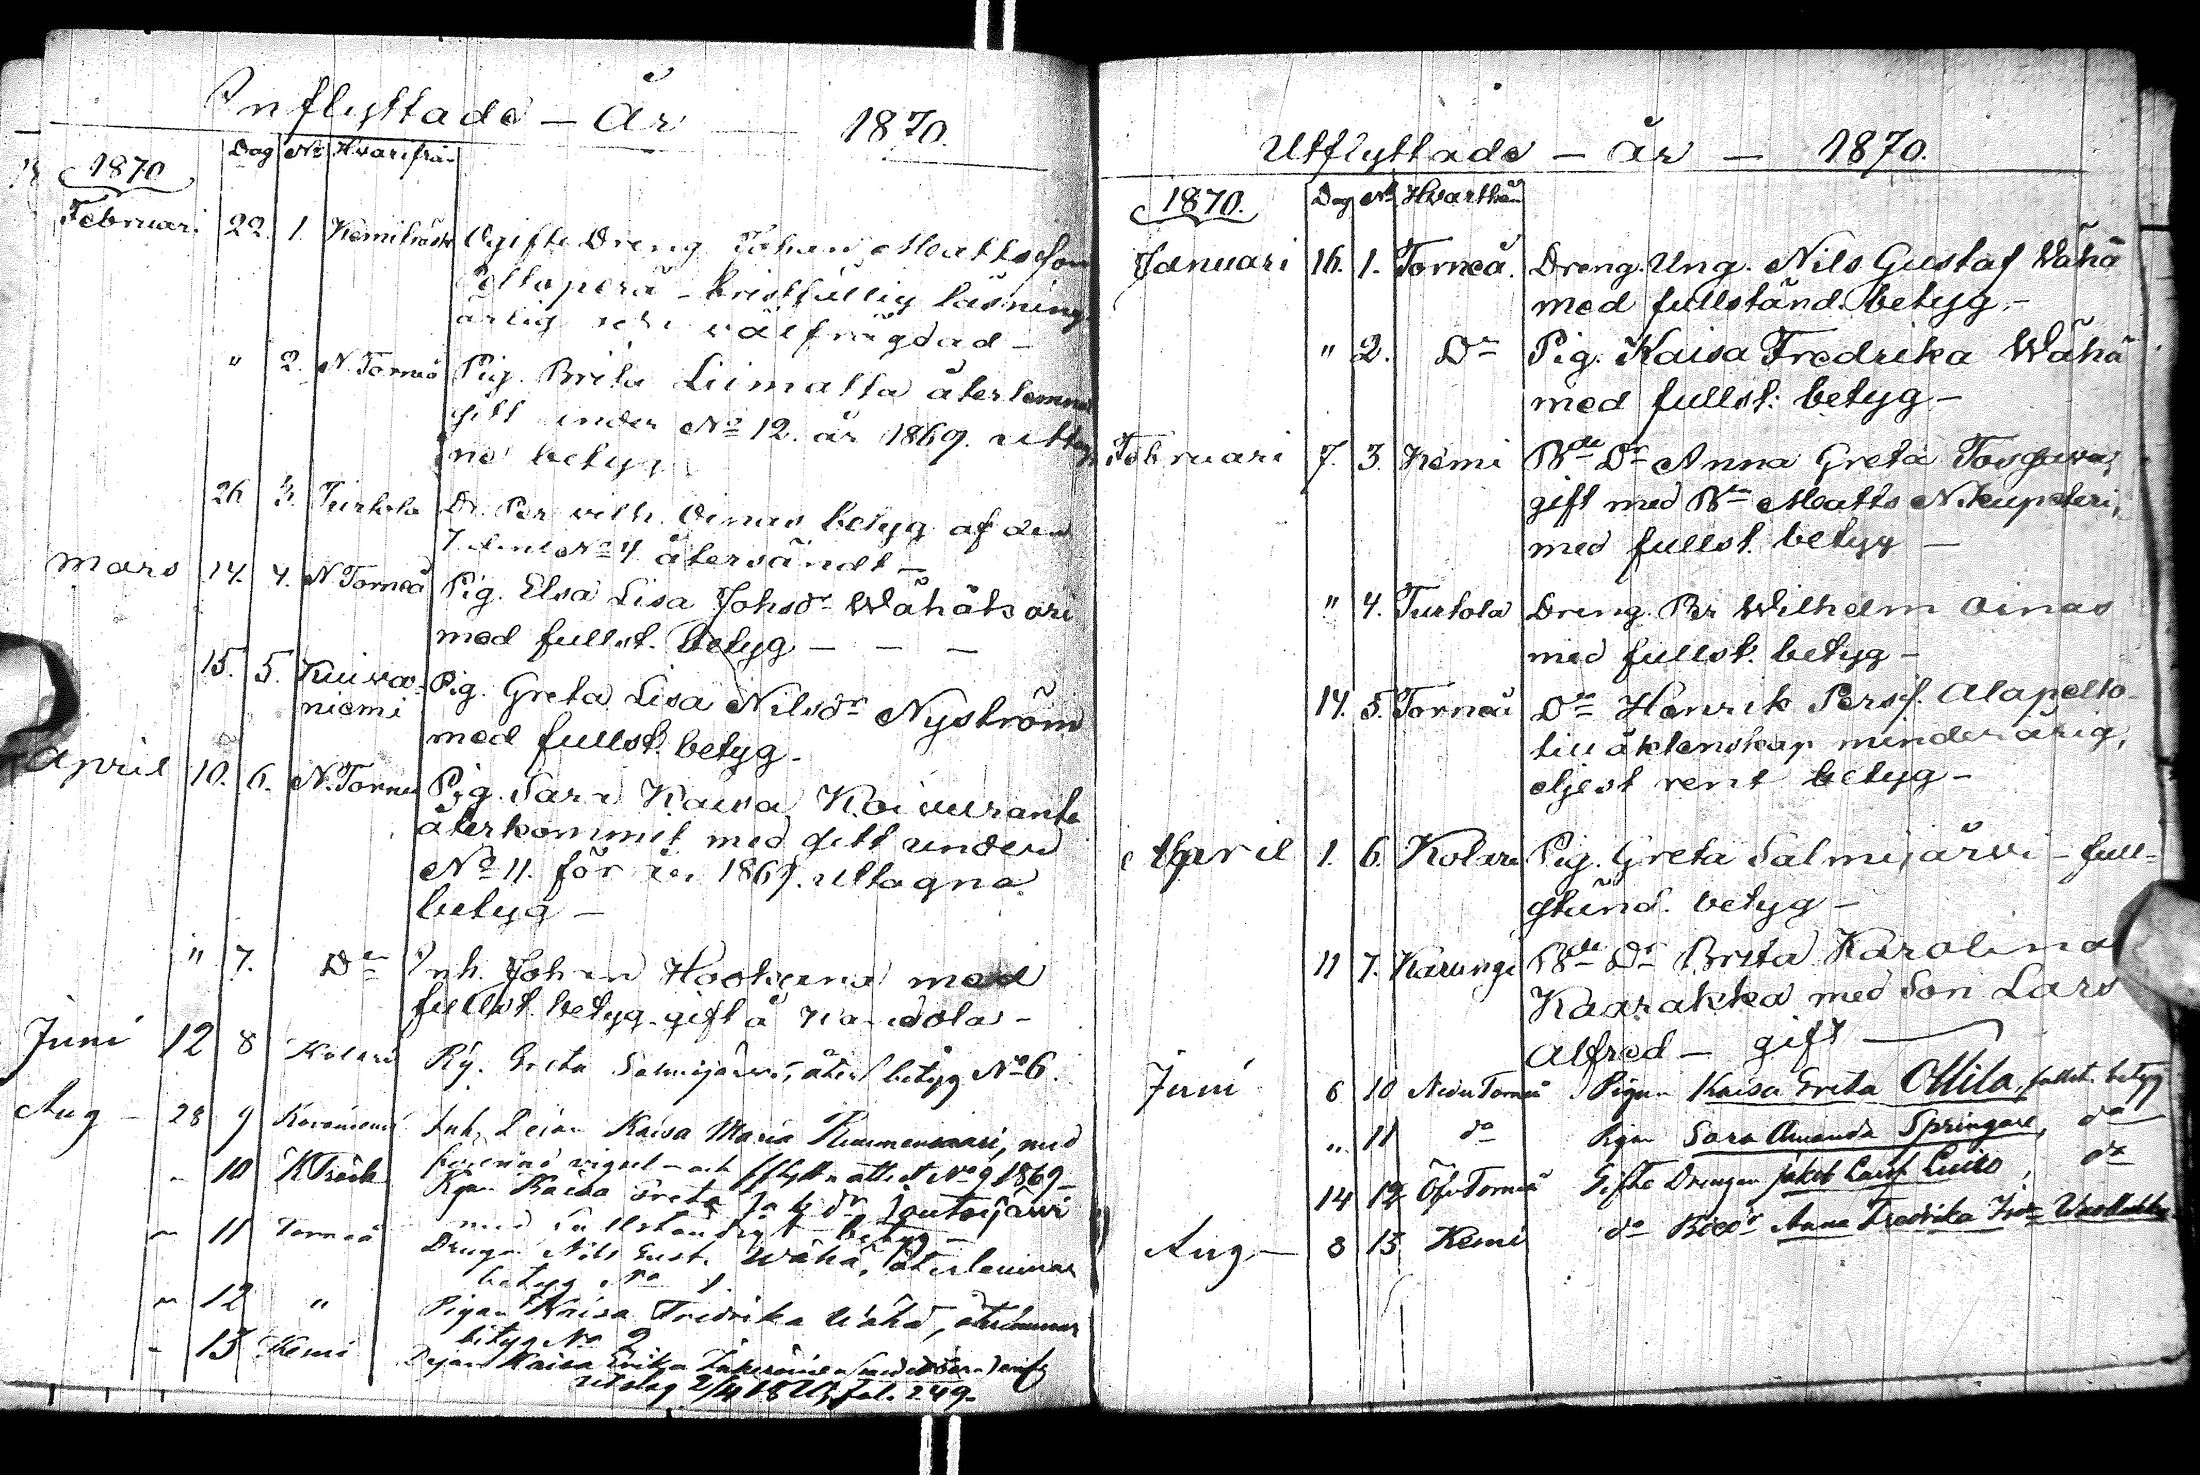 Inflyttade - År 1870.
1870 Dag No Hvarifrån
Februari 22. 1. Kemiträsk Ogifte Dreng Johan Mattsson
Peltoperä - kristlillig läsning
ärlig och välfrägdad -
" 2. N. Torneå Pig. Brita Liimatta återlemnat
sitt under No 12. år 1869. uttag-
na betyg
26 3. Turtola Dr. Per Vilh. Oinas betyg af den
7 No 4 återsändt -
Mars 14. 4. N Torneå Pig. Elsa Lisa Johsdr Wähäkari
med fullst. betyg - - -
15. 5. Kuiva- Pig. Greta Lisa Nilsdr Nyström
niemi med fullst. betyg.
April 10. 6. N. Torneå Pig. Sara Kaisa Koivuranta
återkommit med sitt under
No 11. för år 1869. uttagna
betyg -
" 7. Do Inh. Johan Hookana med
fullst. betyg. gift å
Juni 12 8 Kolari Pig. Greta Salmijärvi, åter betyg No 6.
Aug - 28 9 Inh. Kaisa Maria med
attest No 9 1869 -
" 10 K Träsk Pigan Kaisa Greta Jak dr Jautsijärvi
med fullständigt betyg -
" 11 Torneå Drengen Nils Gust. Wähä, återlemnar
betyg No 1.
" 12 " Pigan Kaisa Fredrika Wähä, återlemnar
betyg No 2
- 13 Kemi Pigan Kaisa Erika
fol. 249.
Utflyttade - år - 1870.
1870. Dag No Hvarthän
Januari 16. 1. Torneå. Dreng. Ung. Nils Gustaf Wähä
med fullständ. betyg -
" 2. Do Pig. Kaisa Fredrika Wähä
med fullst: betyg -
Februari 7. 3. Kemi Bde Dr Anna Greta
gift med Bn Matts
med fullst. betyg -
" 4. Turtola Dreng. Per Wilhelm Oinas
med fullst. betyg -
14. 5. Torneå Dr Henrik Persf. Alapelto-
till äktenskap minderårig,
eljest rent betyg -
April 1. 6. Kolari Pig. Greta Salmijärvi - full-
ständ. betyg -
11 7. Karungi Bde Dr Brita Karolina
Kaarakka med Son Lars
Alfred - gift -
Juni 6 10 Neder Torneå Pigan Kaisa Greta Ollila, fullst. betyg
" 11 do Pigan Sara Amanda Springare, do
14 12 Öfv Torneå Gifte Drengen Jakob Larsf , do
Aug - 8 13 Kemi do Anna Fredrika